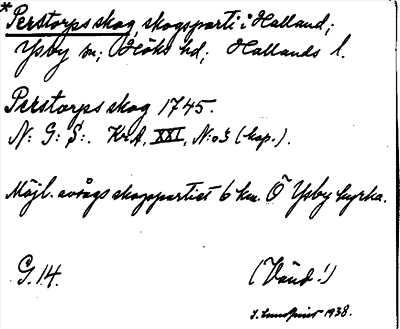 *Perstorps skog, skogsparti i Halland;
Ysby sn; Höks hd; Hallands l.
Perstorps skog 1745.
N: G: S:. KrA, XXI, N:o 3 (kop.).
Möjl. avsågs skogspartiet 6 km. Ö Ysby kyrka.
G. 14. (Vänd!)
J. Lundqvist 1938.